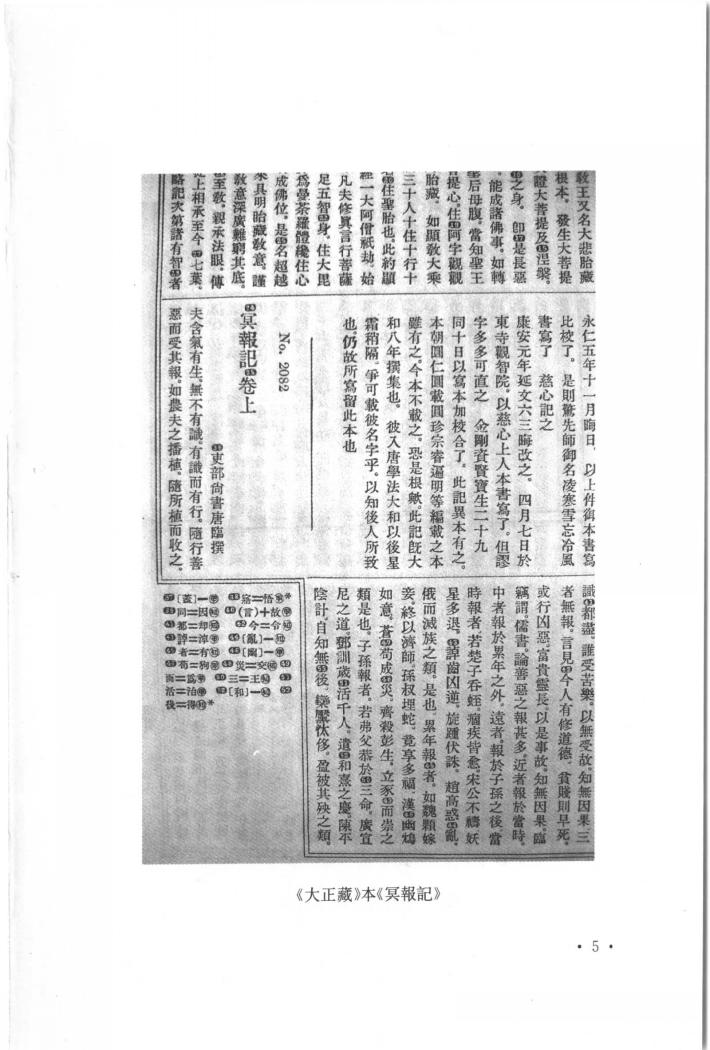 敎王又名大悲胎藏
根本。發生大菩提
證大菩提及涅槃。
之身。卽是長惡
。能成諸佛事。如轉
后母腹。當知聖王
提心。住阿字觀觀
胎藏。如顯敎大乘
三十人十住十行十
住聖胎也。此約顯
一大阿僧祇劫。始
凡夫修眞言行菩薩
足五智身。住大毘
爲曼荼羅體纔住心
成佛位。是名超越
具明胎藏敎意。謹
敎意深廣難窮其底。
至敎。親承法眼。傳
上相承至今七葉。
略記次第諸有智者
永仁五年十一月晦日。以上件御本書寫
比校了。是則驚先師御名凌寒雪忘冷風
書寫了　慈心記之
康安元年延文六三晦改之。四月七日於
東寺觀智院。以慈心上人本書寫了。但謬
字多多可直之　金剛資賢寶生二十九
同十日以寫本加校合了。此記異本有之。
本朝圓仁圓載圓珍宗睿遍明等編載之本
雖有之。今本不載之。恐是根歟。此記旣大
和八年撰集也。彼入唐學法大和以後星
霜稍隔。爭可載彼名字乎。以知後人所致
也。仍故所寫留此本也
No. 2082
冥報記卷上
吏部尙書唐臨撰
夫含氣有生。無不有識。有識而有行。隨行善
惡而受其報。如農夫之播植。隨所植而收之。
識都盡。誰受苦樂。以無受故。知無因果三
者無報。言見今人有修道德。貧賤則早死。
或行凶惡。富貴靈長。以是事故。知無因果。臨
竊謂。儒書論善惡之報甚多。近者報於當時。
中者報於累年之外。遠者報於子孫之後。當
時報者。若楚子吞蛭。痼疾皆愈。宋公不禱妖
星多退。諄齒凶逆。旋踵伏誅。趙高惑亂。
俄而滅族之類。是也。累年報者。如魏顆嫁
妾。終以濟師。孫叔埋蛇。竟享多福。漢幽鴆
如意。蒼苟成災。齊殺彭生。立豕而崇之
類是也。子孫報者。若弗父恭於三命。廣宣
尼之道。鄧訓歲活千人。遺和熹之慶。陳平
陰計。自知無後。欒黶忲侈。盈被其殃之類。
《大正藏》本《冥報記》
· 5 ·